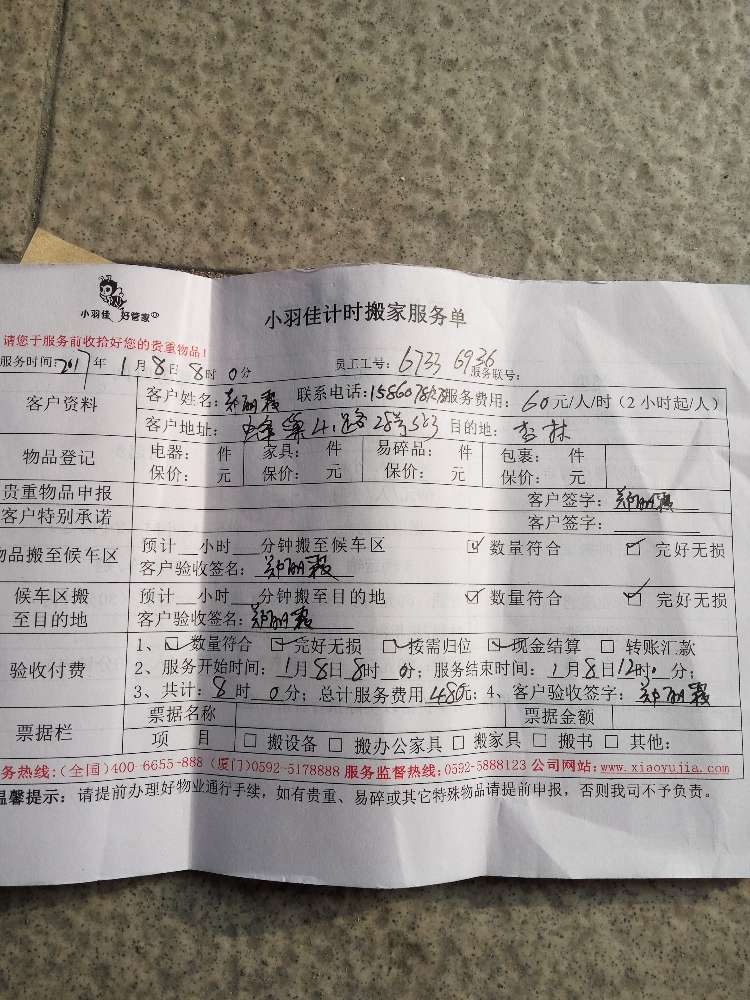 小羽佳 好管家
小羽佳计时搬家服务单
请您于服务前收拾好您的贵重物品！
服务时间：2017年1月8日8时0分 员工工号：6733 6936 服务联号：
客户资料 客户姓名： 联系电话： 服务费用：60元/人/时（2小时起/人）
客户地址： 28号 目的地：杏林
物品登记 电器： 件 家具： 件 易碎品： 件 包裹： 件
保价： 元 保价： 元 保价： 元 保价： 元
贵重物品申报 客户签字：
客户特别承诺 客户签字：
物品搬至候车区 预计__小时__分钟搬至候车区 ☑ 数量符合 ☑ 完好无损
客户验收签名：
候车区搬至目的地 预计__小时__分钟搬至目的地 ☑ 数量符合 ☑ 完好无损
客户验收签名：
验收付费 1、☑ 数量符合 ☑ 完好无损 ☑ 按需归位 ☑ 现金结算 □ 转账汇款
2、服务开始时间：1月8日8时0分；服务结束时间：1月8日12时0分；
3、共计：8时0分；总计服务费用480元；4、客户验收签字：
票据栏 票据名称 票据金额
项 目 □ 搬设备 □ 搬办公家具 □ 搬家具 □ 搬书 □ 其他：
务热线：（全国）400-6655-888（厦门）0592-5178888 服务监督热线：0592-5888123 公司网站：www.xiaoyujia.com
温馨提示：请提前办理好物业通行手续，如有贵重、易碎或其它特殊物品请提前申报，否则我司不予负责。